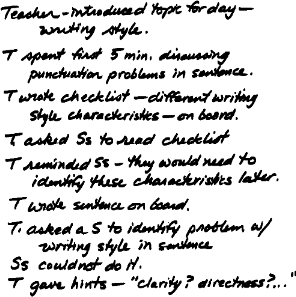 Teacher - introduced topic for day -
writing style.
T spent first 5 min. discussing
punctuation problems in sentence.
T wrote checklist - different writing
style characteristics - on board.
T asked Ss to read checklist
T reminded Ss - they would need to
identify these characteristics later.
T wrote sentence on board.
T. asked a S to identify problem w/
writing style in sentence
Ss could not do it.
T gave hints - "clarity? directness?..."